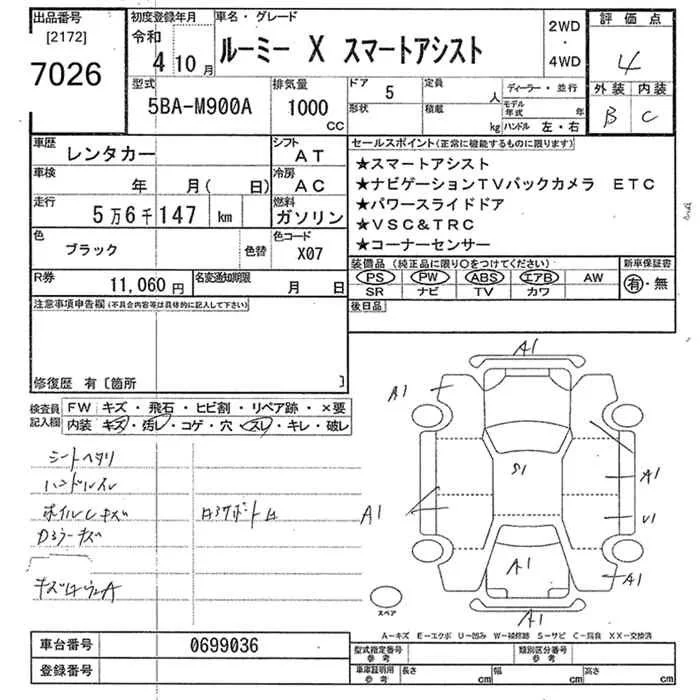 出品番号 初度登録年月 車名・グレード 評価点
[2172] 令和 4 10月 ルーミー X スマートアシスト 2WD・4WD 4
7026
型式 排気量 ドア 5 定員 人 ディーラー・並行 外装 内装
5BA-M900A 1000 cc 形状 積載 kg モデル年式 年 ハンドル 左・右 B C
車歴 レンタカー シフト AT セールスポイント(正常に機能するものに限ります)
車検 年 月( 日) 冷房 AC ★スマートアシスト
★ナビゲーションTVバックカメラ ETC
走行 5万6千147 km 燃料 ガソリン ★パワースライドドア
★VSC&TRC
色 ブラック 色替 色コード X07 ★コーナーセンサー
R券 11,060円 名変通知期限 月 日 装備品(純正品に限り○をつけてください) 新車保証書
PS PW ABS エアB AW 有・無
SR ナビ TV カワ
注意事項申告欄(不具合内容等は具体的に記入して下さい) 後日品
修復歴 有[箇所 ]
検査員記入欄 FW キズ・飛石・ヒビ割・リペア跡・×要
内装 キズ・汚レ・コゲ・穴・スレ・キレ・破レ
シートヘタリ
ハンドルスレ
ホイルLキズ
キズ
A1
A1
A1
S1
A1
U1
A1
A1
A1
A1
スペア
A-キズ E-エクボ U-凹み W-補修跡 S-サビ C-腐食 XX-交換済
車台番号 0699036 型式指定番号 参考 類別区分番号 参考
登録番号 車庫証明用 参考 長さ cm 幅 cm 高さ cm